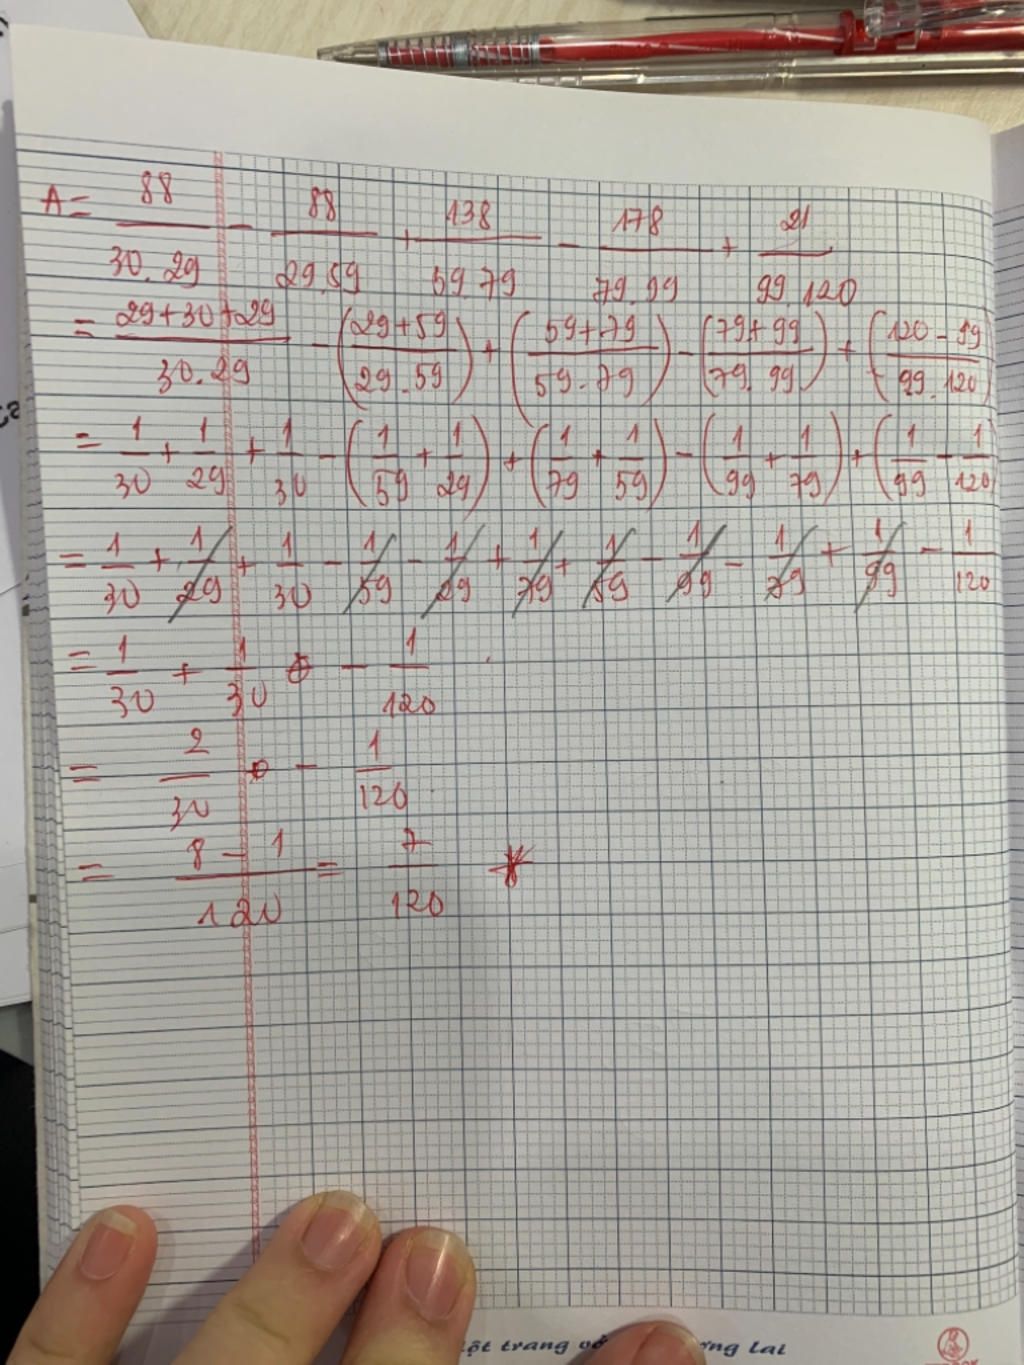 A = 88/30.29 - 88/29.59 + 138/59.79 - 178/79.99 + 21/99.120
= 29+30+29/30.29 - (29+59/29.59) + (59+79/59.79) - (79+99/79.99) + (120-99/99.120)
= 1/30 + 1/29 + 1/30 - (1/59 + 1/29) + (1/79 + 1/59) - (1/99 + 1/79) + (1/99 - 1/120)
= 1/30 + 1/29 + 1/30 - 1/59 - 1/29 + 1/79 + 1/59 - 1/99 - 1/79 + 1/99 - 1/120
= 1/30 + 1/30 - 1/120
= 2/30 - 1/120
= 8-1/120 = 7/120
một trang vở
ng lai